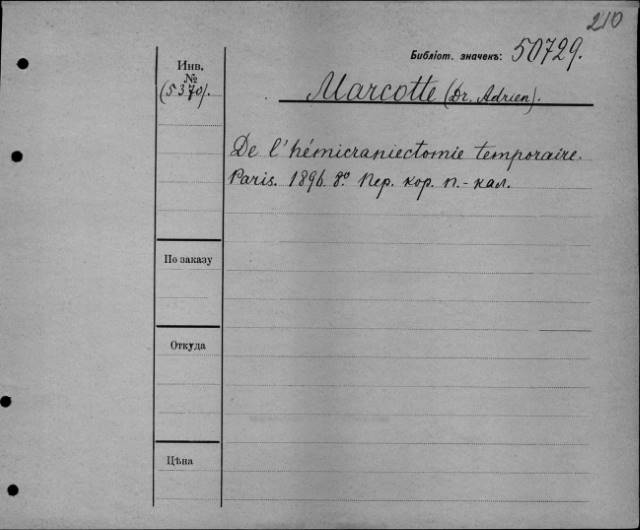 210
Библіот. значекъ: 50729.
Инв.
№
(5370).
Marcotte (Dr. Adrien).
De l'hémicraniectomie temporaire.
Paris. 1896. 8º. Пер. кор. п.-кал.
По заказу
Откуда
Цѣна